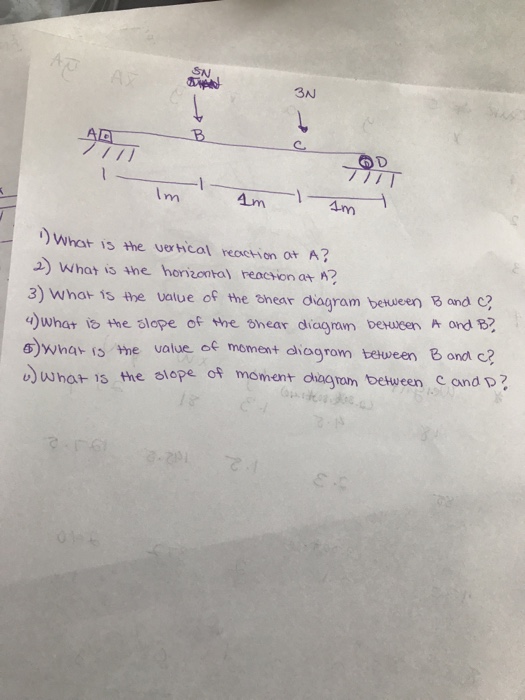 5N
3N
A
B
C
D
1m
1m
1m
1) What is the vertical reaction at A?
2) What is the horizontal reaction at A?
3) What is the value of the shear diagram between B and C?
4) What is the slope of the shear diagram between A and B?
5) What is the value of moment diagram between B and C?
6) What is the slope of moment diagram between C and D?